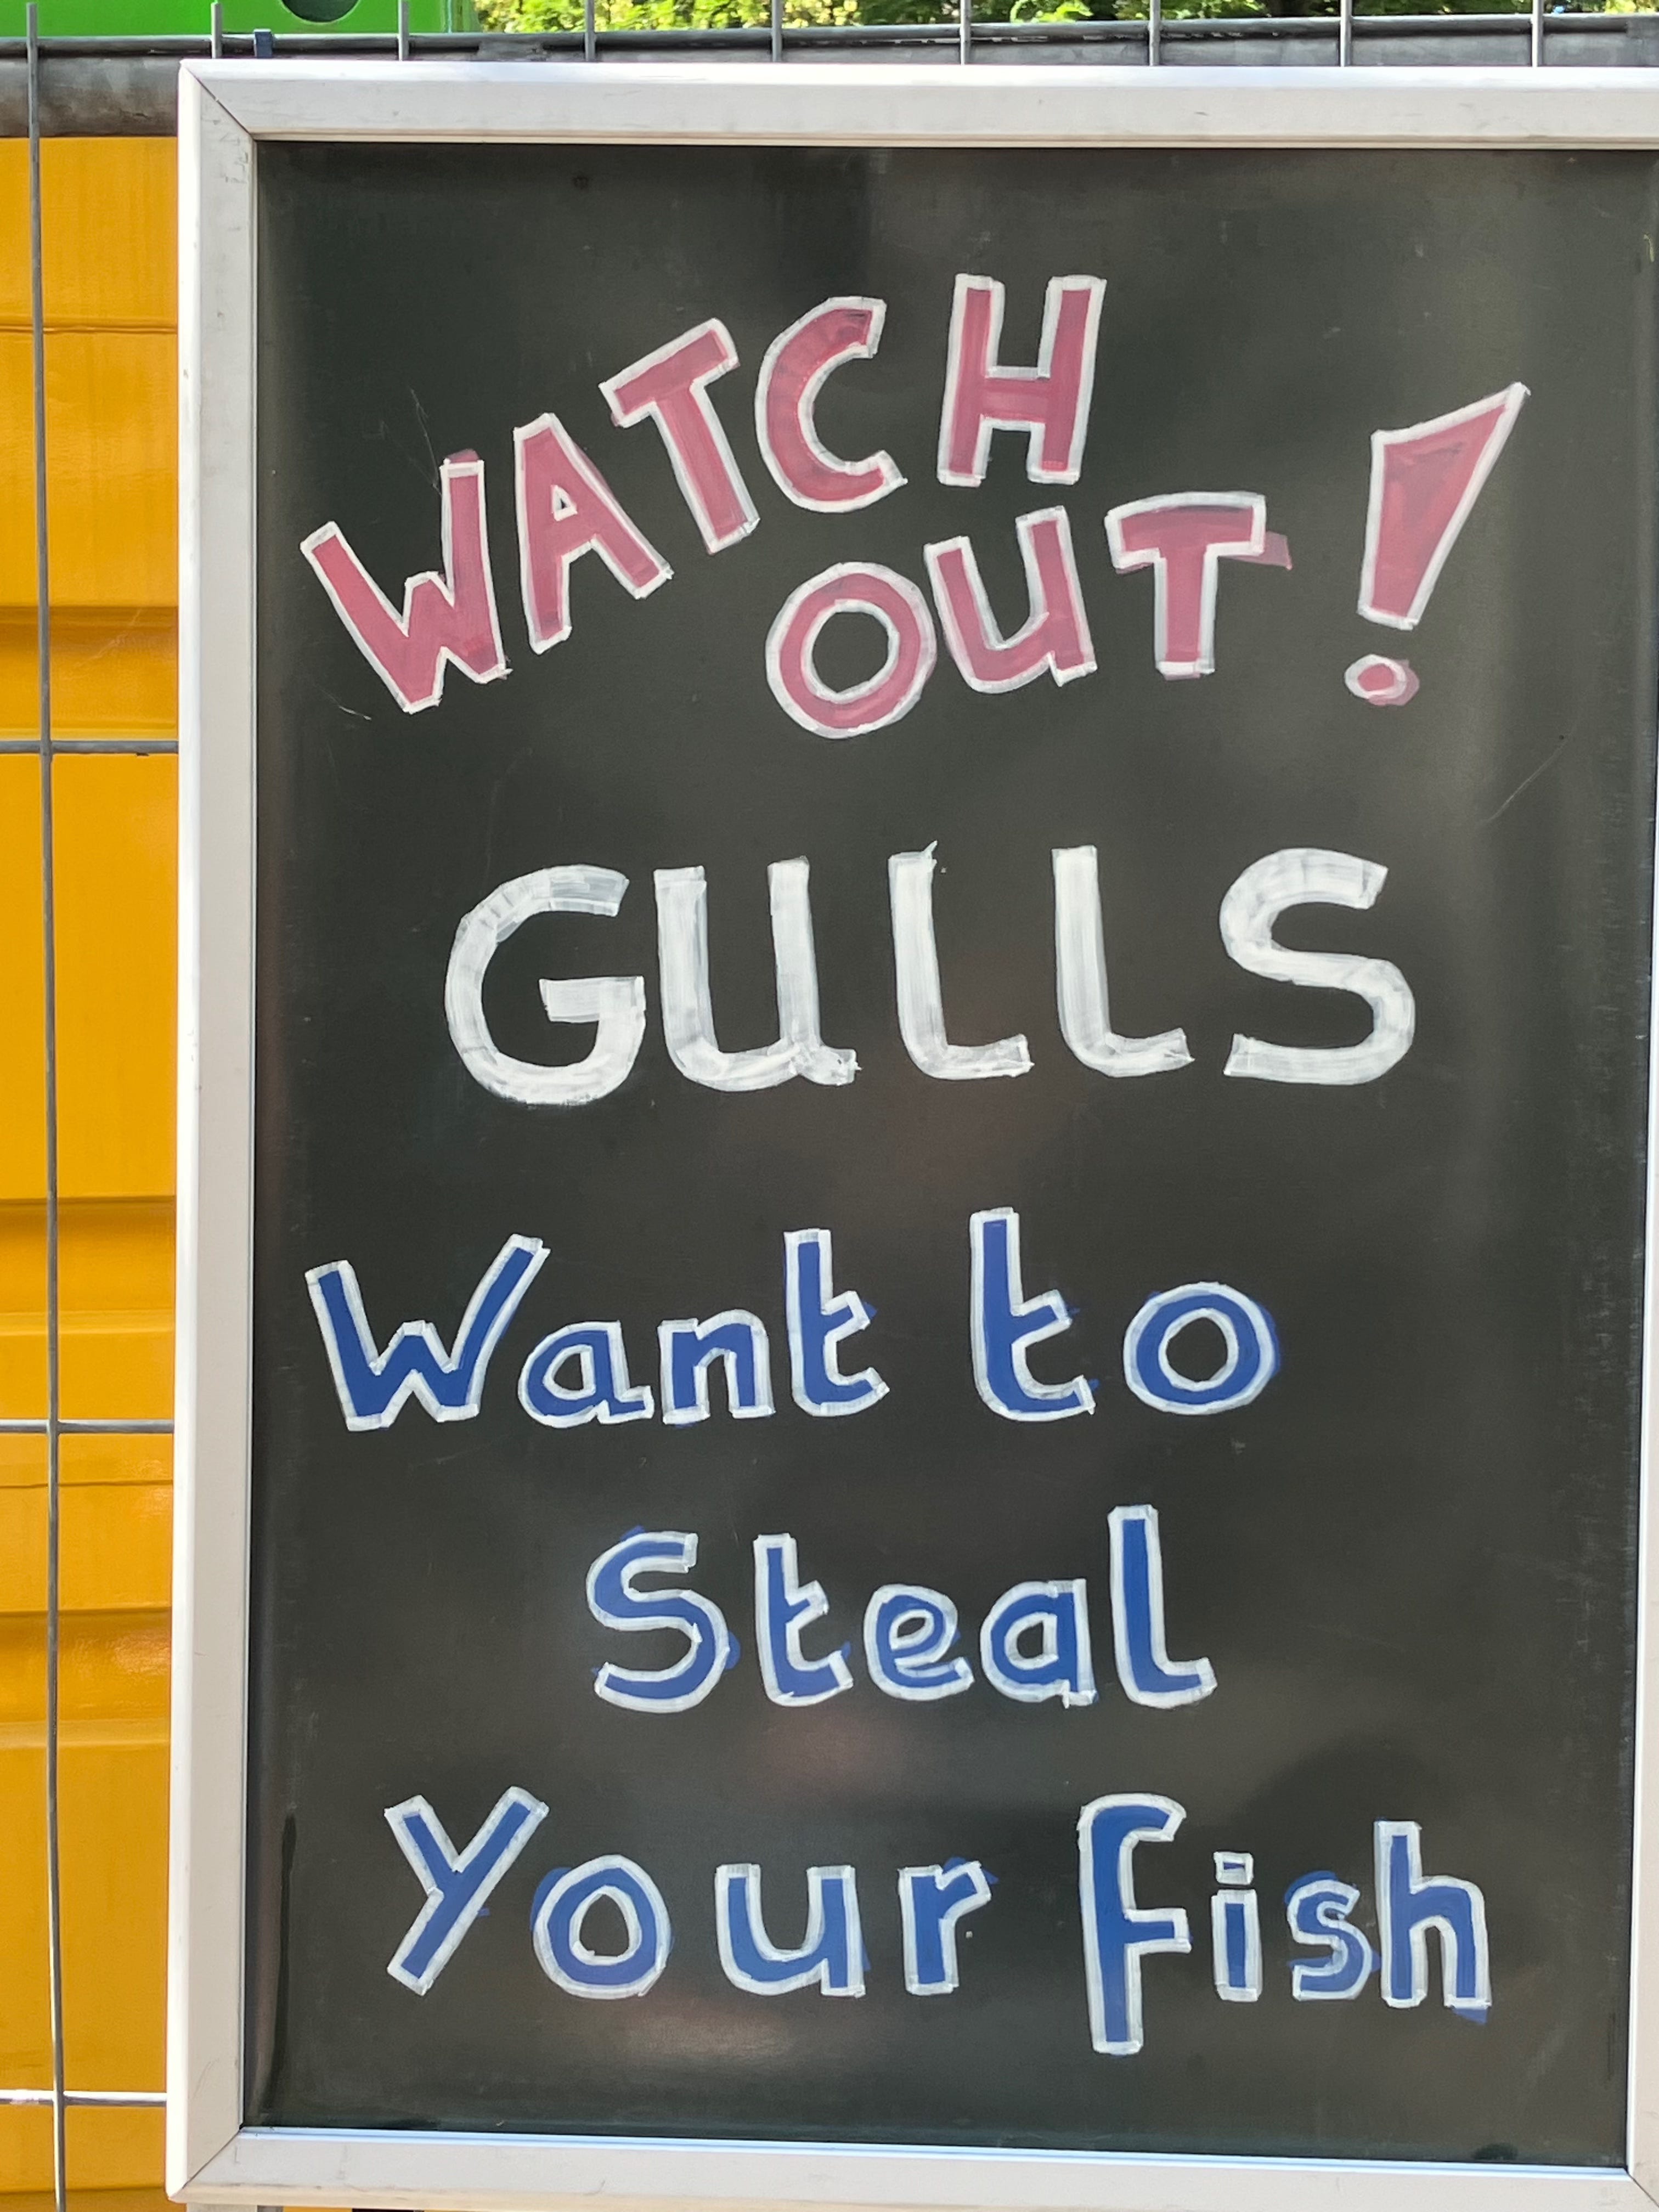 WATCH
OUT!
GULLS
Want to
Steal
Your fish